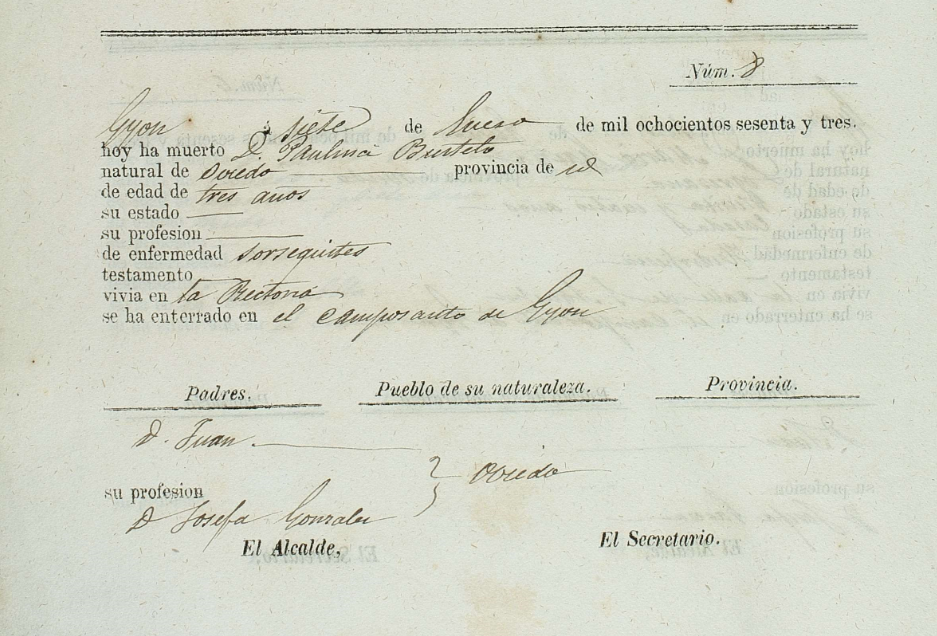 Núm. 8
Gyon á siete de Enero de mil ochocientos sesenta y tres.
hoy ha muerto D. Paulina Busteto
natural de Oviedo provincia de id
de edad de tres años
su estado
su profesion
de enfermedad
testamento
vivia en la Rectoria
se ha enterrado en el camposanto de Gyon
Padres. Pueblo de su naturaleza. Provincia.
D. Juan.
Oviedo
su profesion
D Josefa Gonzalez
El Alcalde, El Secretario.